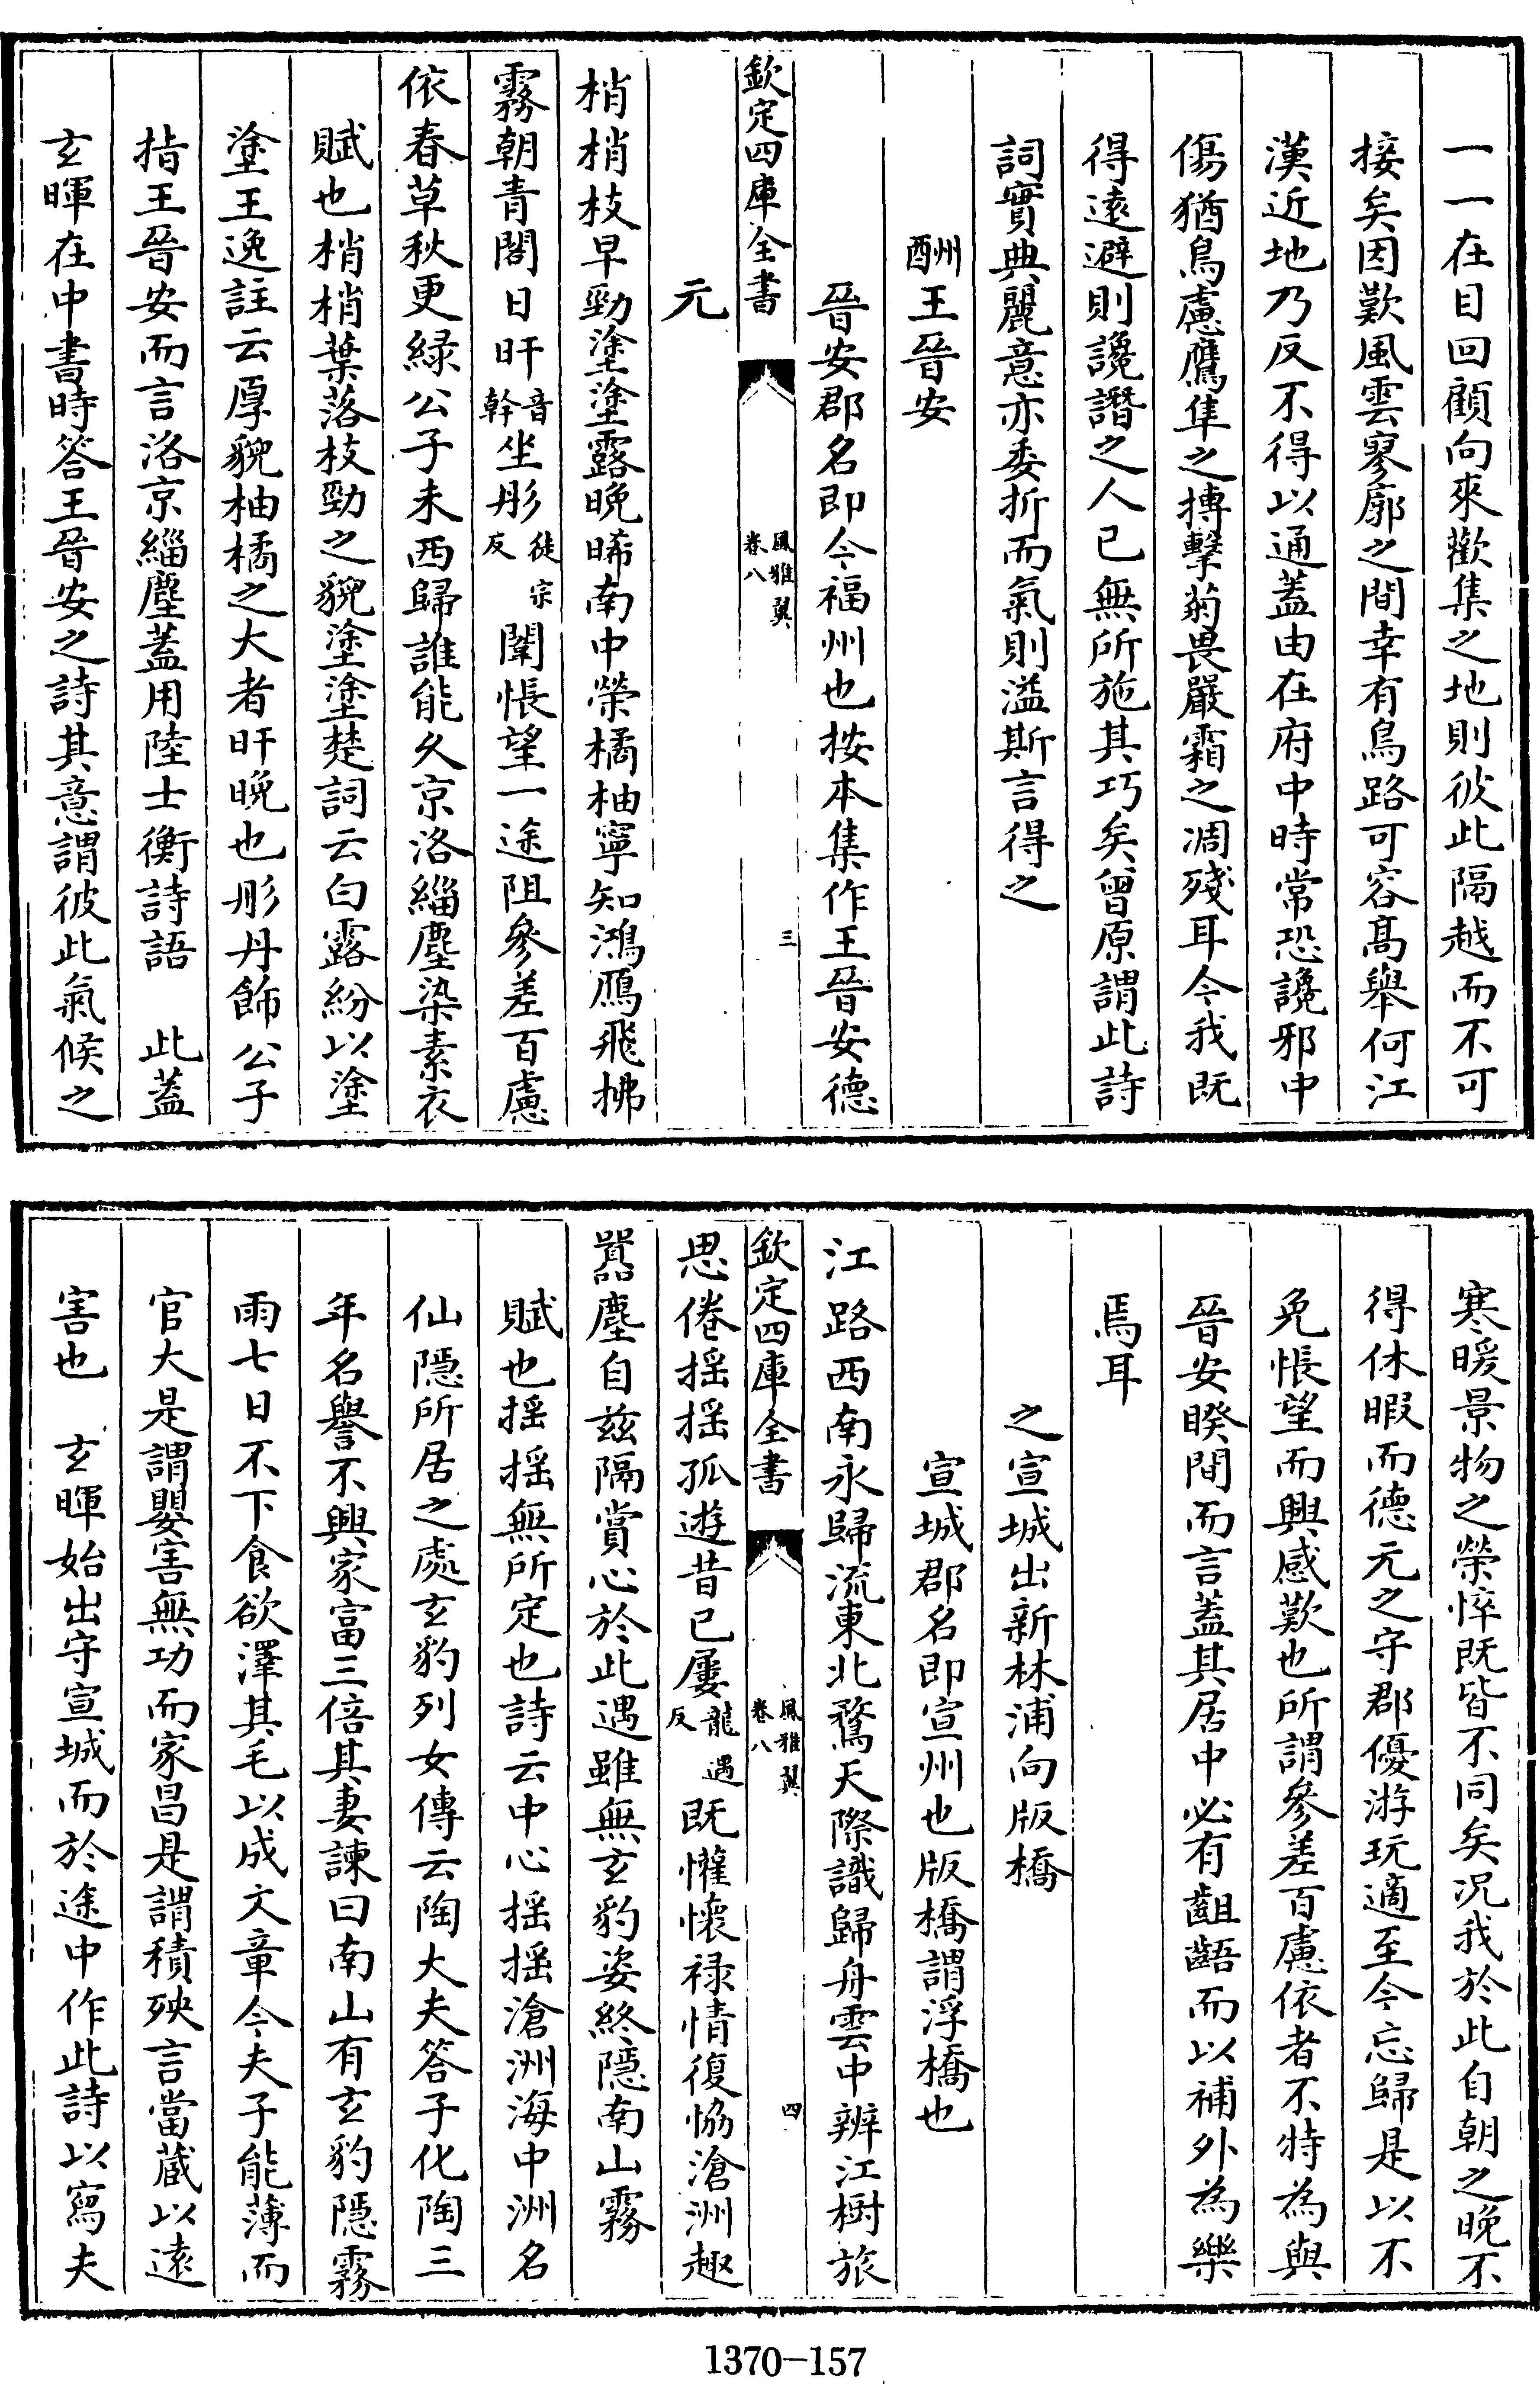 一一在目回顧向來歡集之地則彼此隔越而不可
接矣因歎風雲寥廓之間幸有鳥路可容髙舉何江
漢近地乃反不得以通蓋由在府中時常恐讒邪中
傷猶鳥慮鷹隼之搏擊菊畏嚴霜之凋殘耳今我既
得遠避則讒譖之人已無所施其巧矣曾原謂此詩
詞實典麗意亦委折而氣則溢斯言得之
酬王晉安
晉安郡名即今福州也按本集作王晉安德
欽定四庫全書
風雅翼
卷八
三
元
梢梢枝早勁塗塗露晩晞南中榮橘柚寧知鴻鴈飛拂
霧朝青閣日旰音幹坐彤徒宗反闈悵望一途阻參差百慮
依春草秋更緑公子未西歸誰能久京洛緇塵染素衣
賦也梢梢葉落枝勁之貌塗塗楚詞云白露紛以塗
塗王逸註云厚貌柚橘之大者旰晚也彤丹飾公子
指王晉安而言洛京緇塵蓋用陸士衡詩語　此蓋
玄暉在中書時答王晉安之詩其意謂彼此氣候之
寒暖景物之榮悴既皆不同矣况我於此自朝之晚不
得休暇而德元之守郡優游玩適至今忘歸是以不
免悵望而興感歎也所謂參差百慮依者不特為與
晉安暌間而言蓋其居中必有齟齬而以補外為樂
焉耳
之宣城出新林浦向版橋
宣城郡名即宣州也版橋謂浮橋也
江路西南永歸流東北騖天際識歸舟雲中辨江樹旅
欽定四庫全書
風雅翼
卷八
四
思倦揺揺孤遊昔已屢龍遇反既懽懷禄情復協滄洲趣
囂塵自兹隔賞心於此遇雖無玄豹姿終隱南山霧
賦也揺揺無所定也詩云中心揺揺滄洲海中洲名
仙隱所居之處玄豹列女傳云陶大夫答子化陶三
年名譽不興家富三倍其妻諫曰南山有玄豹隱霧
雨七日不下食欲澤其毛以成文章今夫子能薄而
官大是謂嬰害無功而家昌是謂積殃言當蔵以遠
害也　玄暉始出守宣城而於途中作此詩以寫夫
1370-157